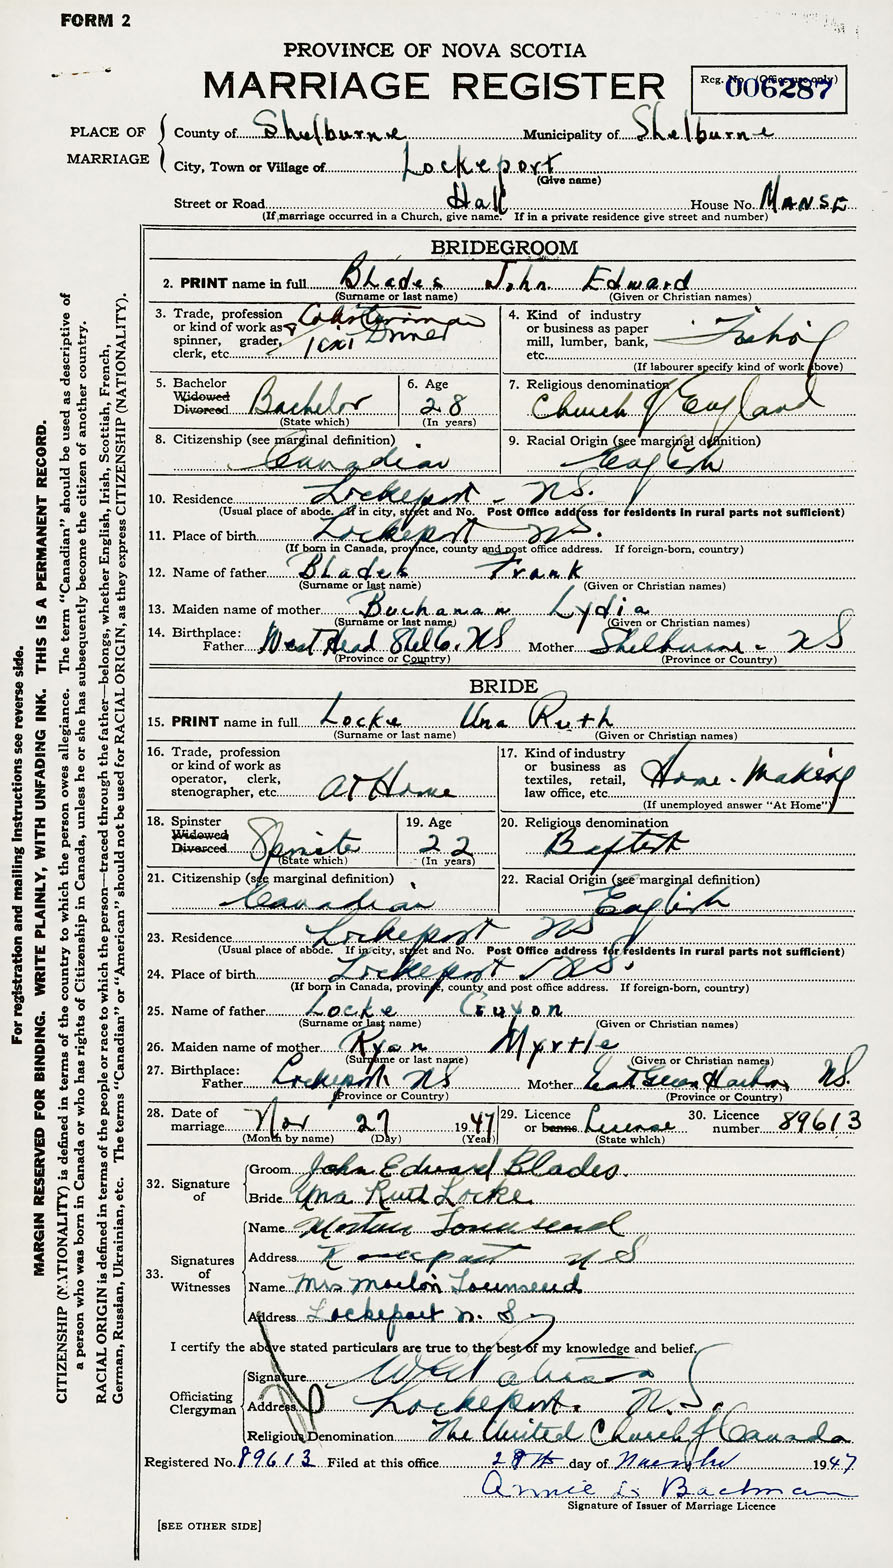 FORM 2
PROVINCE OF NOVA SCOTIA
MARRIAGE REGISTER
Reg. No. (Office use only)
006287
PLACE OF MARRIAGE
County of Shelburne Municipality of Shelburne
City, Town or Village of Lockeport
(Give name)
Street or Road Hall House No. MANSE
(If marriage occurred in a Church, give name. If in a private residence give street and number)
BRIDEGROOM
2. PRINT name in full Blades John Edward
(Surname or last name) (Given or Christian names)
3. Trade, profession or kind of work as spinner, grader, clerk, etc. Taxi Driver
4. Kind of industry or business as paper mill, lumber, bank, etc. Fishing
(If labourer specify kind of work above)
5. Bachelor Widowed Divorced Bachelor
(State which)
6. Age 28
(In years)
7. Religious denomination Church of England
8. Citizenship (see marginal definition) Canadian
9. Racial Origin (see marginal definition) English
10. Residence Lockeport - NS.
(Usual place of abode. If in city, street and No. Post Office address for residents in rural parts not sufficient)
11. Place of birth Lockeport NS.
(If born in Canada, province, county and post office address. If foreign-born, country)
12. Name of father Blades Frank
(Surname or last name) (Given or Christian names)
13. Maiden name of mother Buchanan Lydia
(Surname or last name) (Given or Christian names)
14. Birthplace:
Father West Head Shelb. NS Mother Shelburne - NS
(Province or Country) (Province or Country)
BRIDE
15. PRINT name in full Locke Una Ruth
(Surname or last name) (Given or Christian names)
16. Trade, profession or kind of work as operator, clerk, stenographer, etc. At Home
17. Kind of industry or business as textiles, retail, law office, etc. Home-Making
(If unemployed answer "At Home")
18. Spinster Widowed Divorced Spinster
(State which)
19. Age 22
(In years)
20. Religious denomination Baptist
21. Citizenship (see marginal definition) Canadian
22. Racial Origin (see marginal definition) English
23. Residence Lockeport NS
(Usual place of abode. If in city, street and No. Post Office address for residents in rural parts not sufficient)
24. Place of birth Lockeport NS.
(If born in Canada, province, county and post office address. If foreign-born, country)
25. Name of father Locke
(Surname or last name) (Given or Christian names)
26. Maiden name of mother Ryan Myrtle
(Surname or last name) (Given or Christian names)
27. Birthplace:
Father Lockeport NS Mother East Green Harbor NS.
(Province or Country) (Province or Country)
28. Date of marriage Nov 27 1947
(Month by name) (Day) (Year)
29. Licence or banns License
(State which)
30. Licence number 89613
32. Signature of
Groom John Edward Blades.
Bride Una Ruth Locke
33. Signatures of Witnesses
Name Townsend
Address Lockeport N S
Name Mrs Townsend
Address Lockeport N. S.
I certify the above stated particulars are true to the best of my knowledge and belief.
Officiating Clergyman
Signature
Address Lockeport. N.S.
Religious Denomination The United Church of Canada
Registered No. 89613 Filed at this office 28th day of November 1947
Annie Bachman
Signature of Issuer of Marriage Licence
[SEE OTHER SIDE]
For registration and mailing instructions see reverse side.
MARGIN RESERVED FOR BINDING. WRITE PLAINLY, WITH UNFADING INK. THIS IS A PERMANENT RECORD.
CITIZENSHIP (NATIONALITY) is defined in terms of the country to which the person owes allegiance. The term "Canadian" should be used as descriptive of
a person who was born in Canada or who has rights of Citizenship in Canada, unless he or she has subsequently become the citizen of another country.
RACIAL ORIGIN is defined in terms of the people or race to which the person—traced through the father—belongs, whether English, Irish, Scottish, French,
German, Russian, Ukrainian, etc. The terms "Canadian" or "American" should not be used for RACIAL ORIGIN, as they express CITIZENSHIP (NATIONALITY).